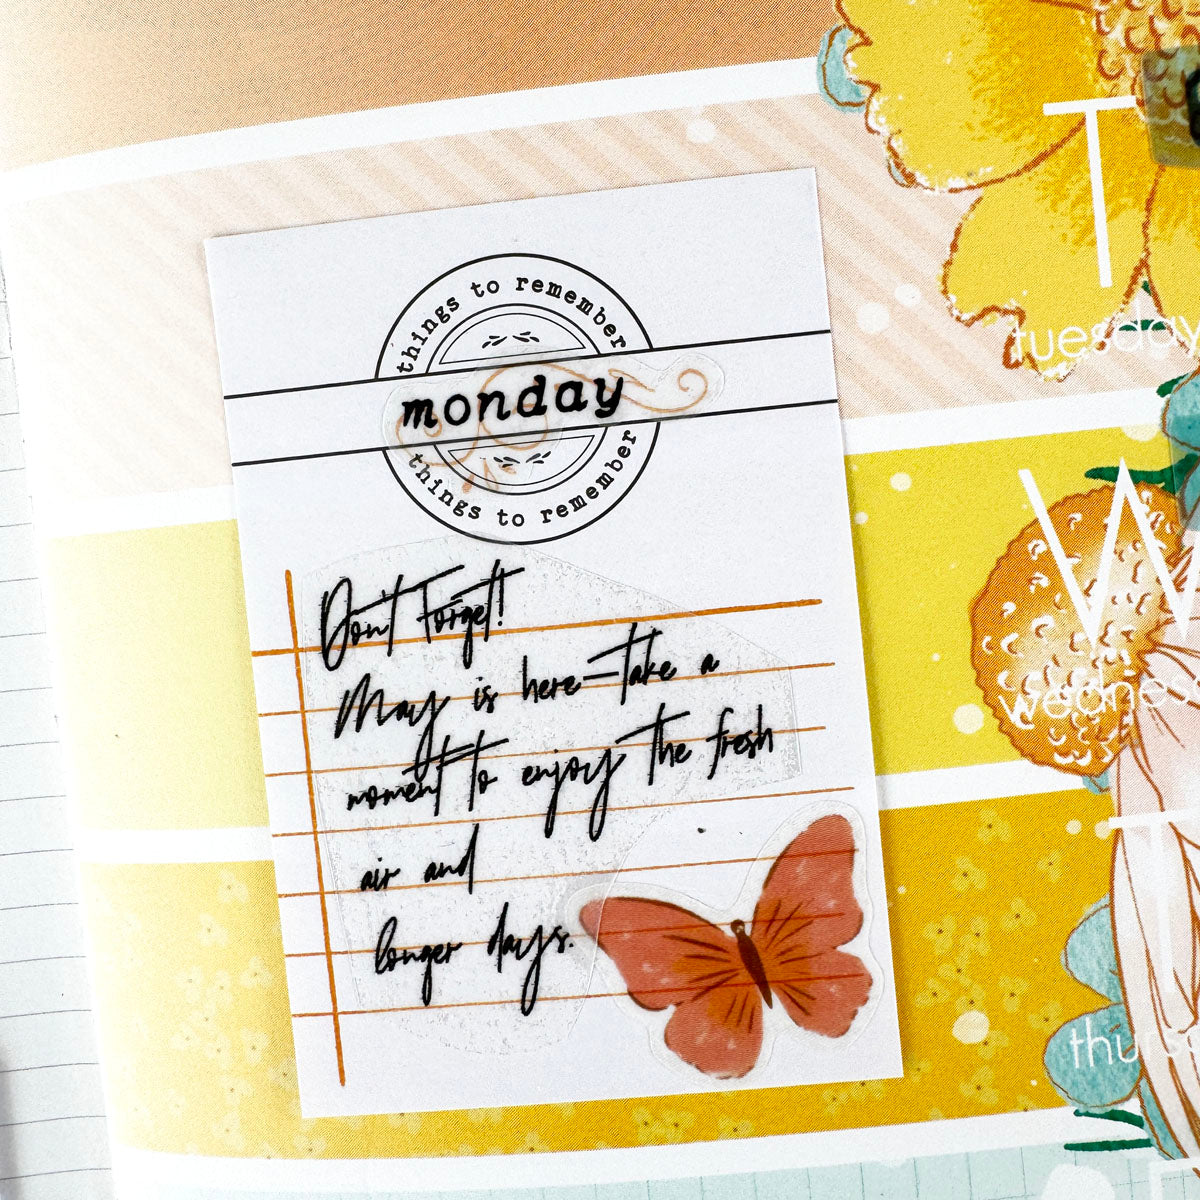 things to remember
monday
things to remember
Don't Forget!
May is here—take a
moment to enjoy the fresh
air and
longer days.
T
tuesday
W
wednes
T
thurs